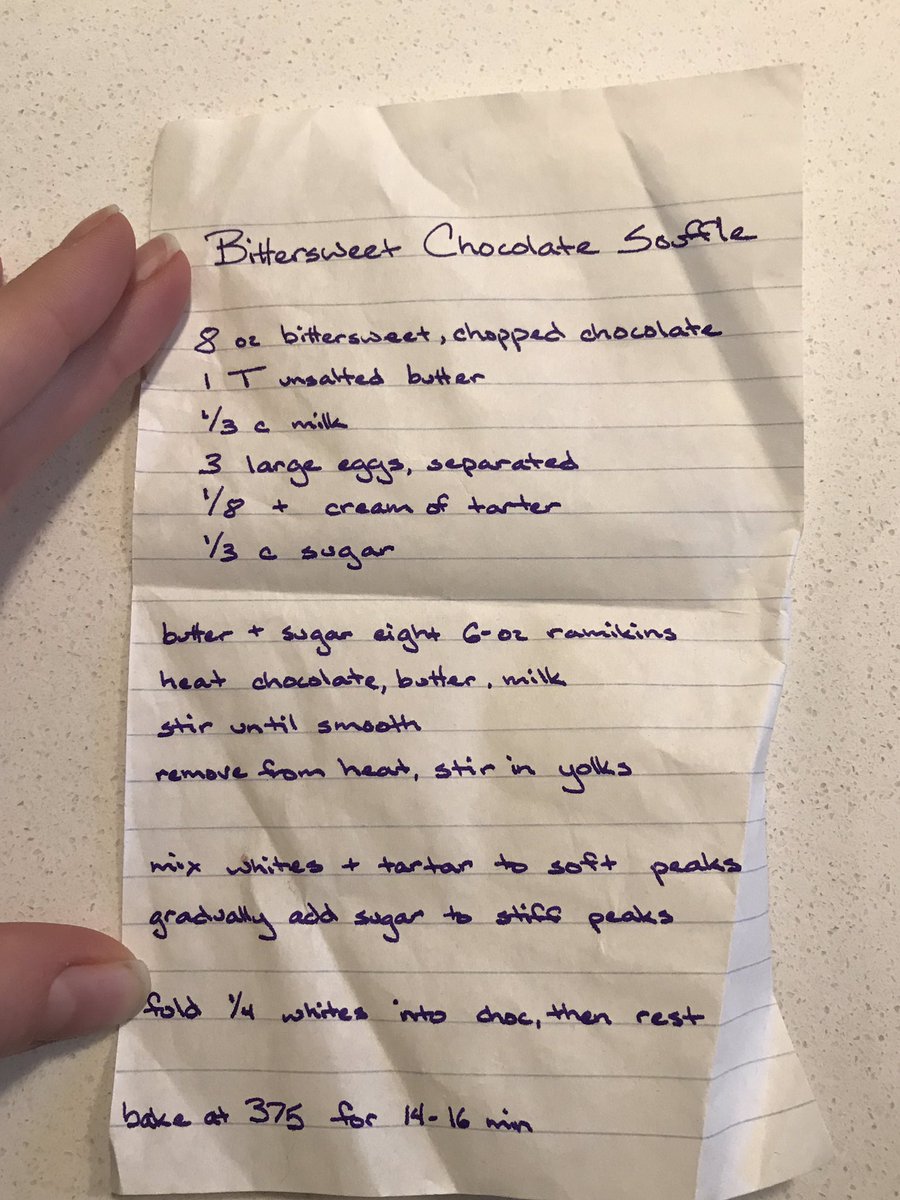 Bittersweet Chocolate Souffle
8 oz bittersweet, chopped chocolate
1 T unsalted butter
1/3 c milk
3 large eggs, separated
1/8 t cream of tarter
1/3 c sugar
butter + sugar eight 6-oz ramikins
heat chocolate, butter, milk
stir until smooth
remove from heat, stir in yolks
mix whites + tartar to soft peaks
gradually add sugar to stiff peaks
fold 1/4 whites into choc, then rest
bake at 375 for 14-16 min